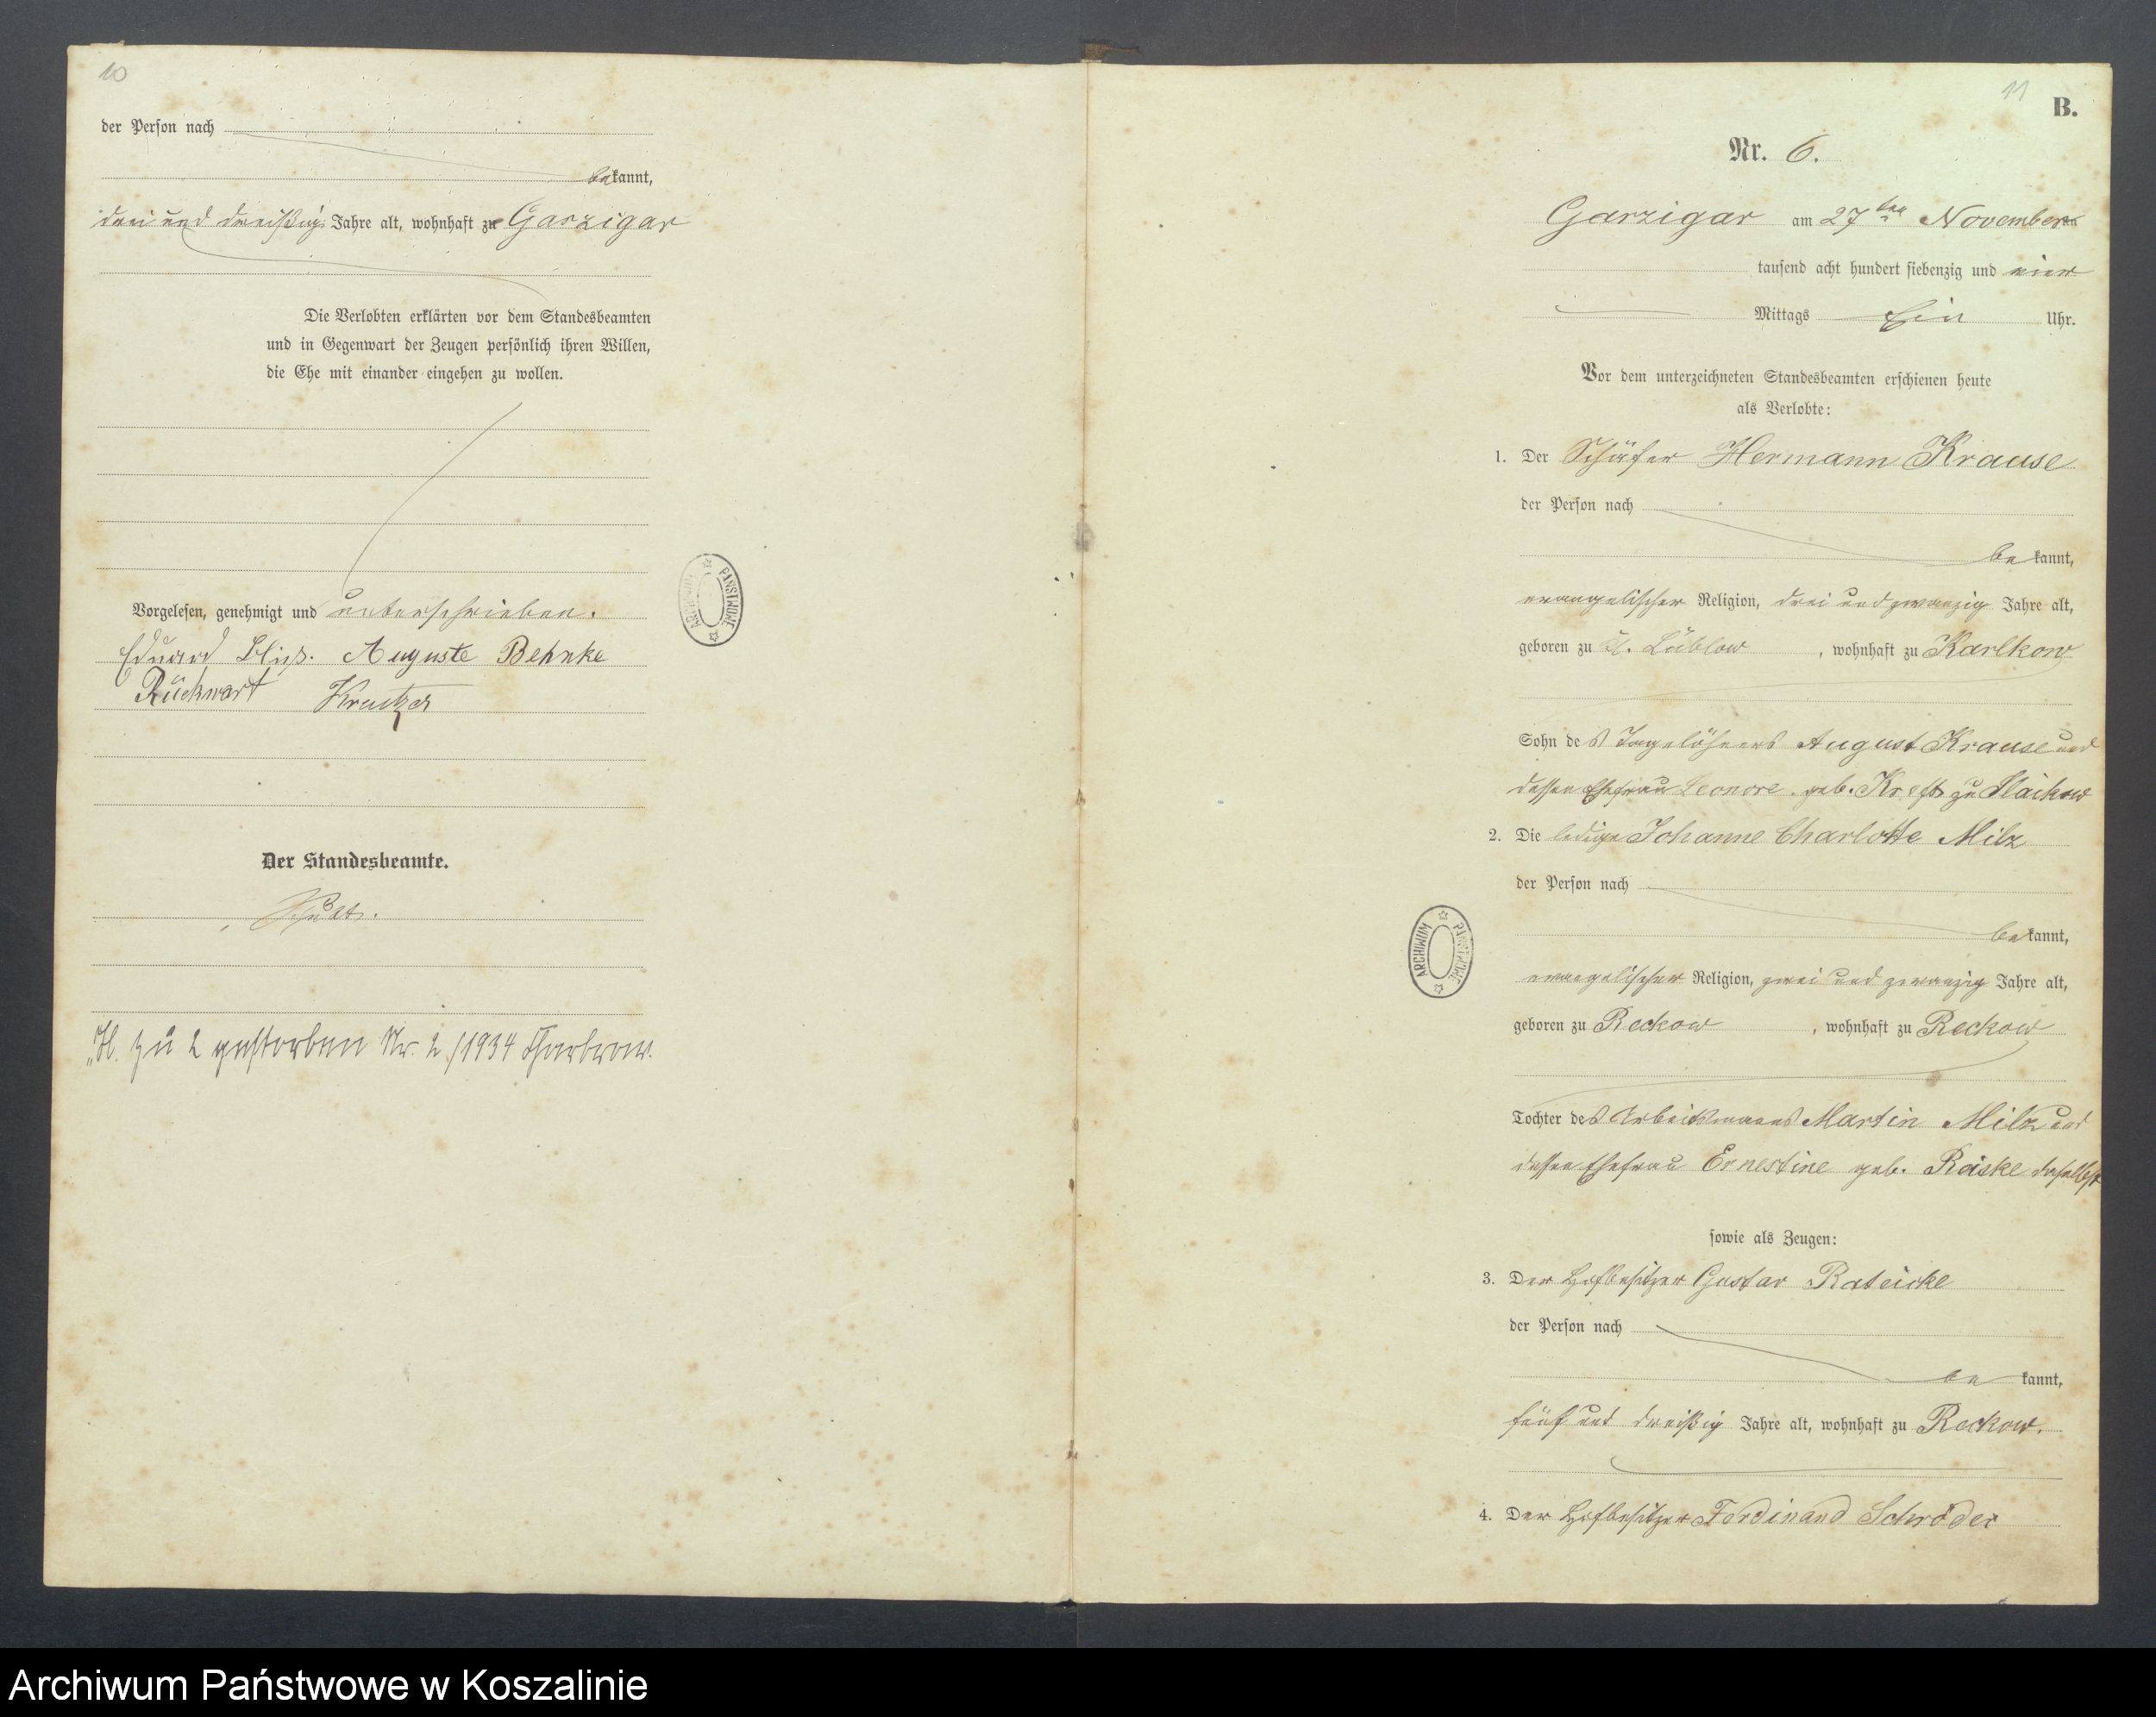 10
der Person nach
bekannt,
drei und dreißig Jahre alt, wohnhaft zu Garzigar
Die Verlobten erklärten vor dem Standesbeamten
und in Gegenwart der Zeugen persönlich ihren Willen,
die Ehe mit einander eingehen zu wollen.
Vorgelesen, genehmigt und unterschrieben.
Eduard Auguste Behnke
Rückwart
ARCHIWUM PAŃSTWOWE
Der Standesbeamte.
zu 2 gestorben Nr. 2/1934 Charbrow.
11
B.
Nr. 6.
Garzigar am 27ten November
tausend acht hundert siebenzig und vier
Mittags Ein Uhr.
Vor dem unterzeichneten Standesbeamten erschienen heute
als Verlobte:
1. Der Schäfer Hermann Krause
der Person nach
bekannt,
evangelischer Religion, drei und zwanzig Jahre alt,
geboren zu Lüblow, wohnhaft zu Karlkow
Sohn des Tagelöhners August Krause und
dessen Ehefrau Leonore geb. Kreft zu
2. Die ledige Johanne Charlotte Milz
der Person nach
bekannt,
evangelischer Religion, zwei und zwanzig Jahre alt,
geboren zu Reckow, wohnhaft zu Reckow
ARCHIWUM PAŃSTWOWE
Tochter des Arbeitsmanns Martin Milz und
dessen Ehefrau Ernestine geb. Raske daselbst
sowie als Zeugen:
3. Der Hofbesitzer Gustav Rateicke
der Person nach
bekannt,
fünf und dreißig Jahre alt, wohnhaft zu Reckow.
4. Der Hofbesitzer Ferdinand Schröder
Archiwum Państwowe w Koszalinie